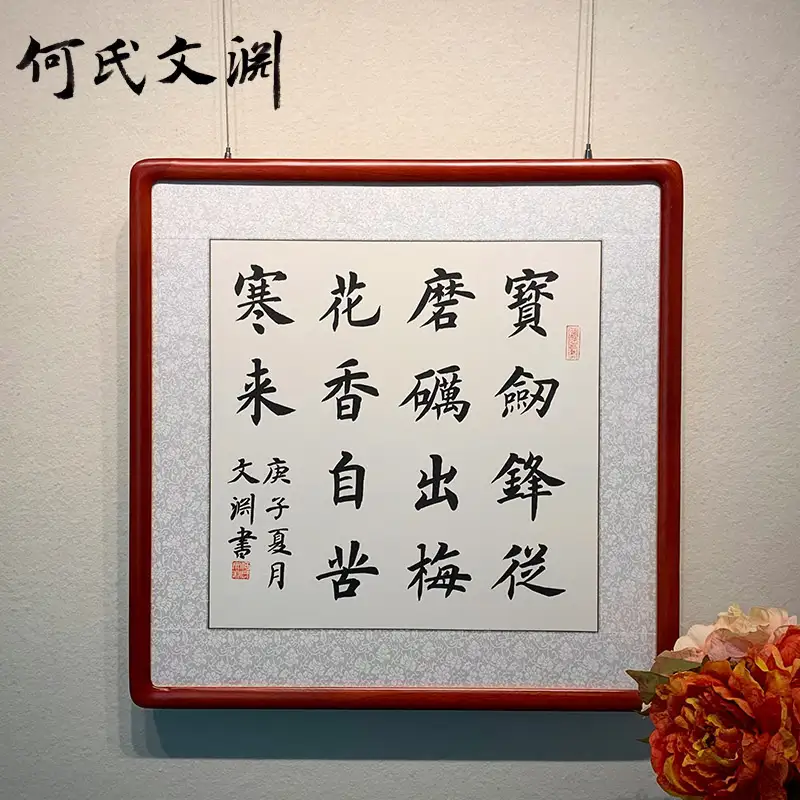 何氏文渊
寳劒鋒従
磨礪出梅
花香自苦
寒来
庚子夏月
文渊書